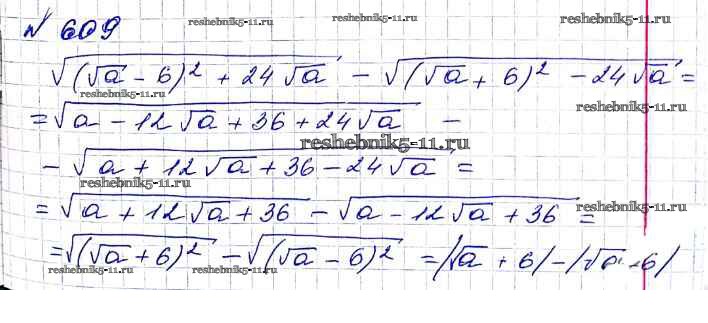 № 609 reshebnik5-11.ru reshebnik5-11.ru
√((√a - 6)² + 24√a) - √((√a + 6)² - 24√a) =
reshebnik5-11.ru reshebnik5-11.ru
= √(a - 12√a + 36 + 24√a) -
reshebnik5-11.ru
- √(a + 12√a + 36 - 24√a) =
reshebnik5-11.ru
= √(a + 12√a + 36) - √(a - 12√a + 36) =
reshebnik5-11.ru
= √((√a + 6)²) - √((√a - 6)²) = |√a + 6| - |√a - 6|
reshebnik5-11.ru reshebnik5-11.ru